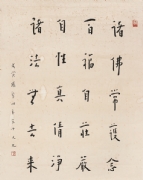 諸佛常護念
百福自莊嚴
自性真清淨
諸法無去來